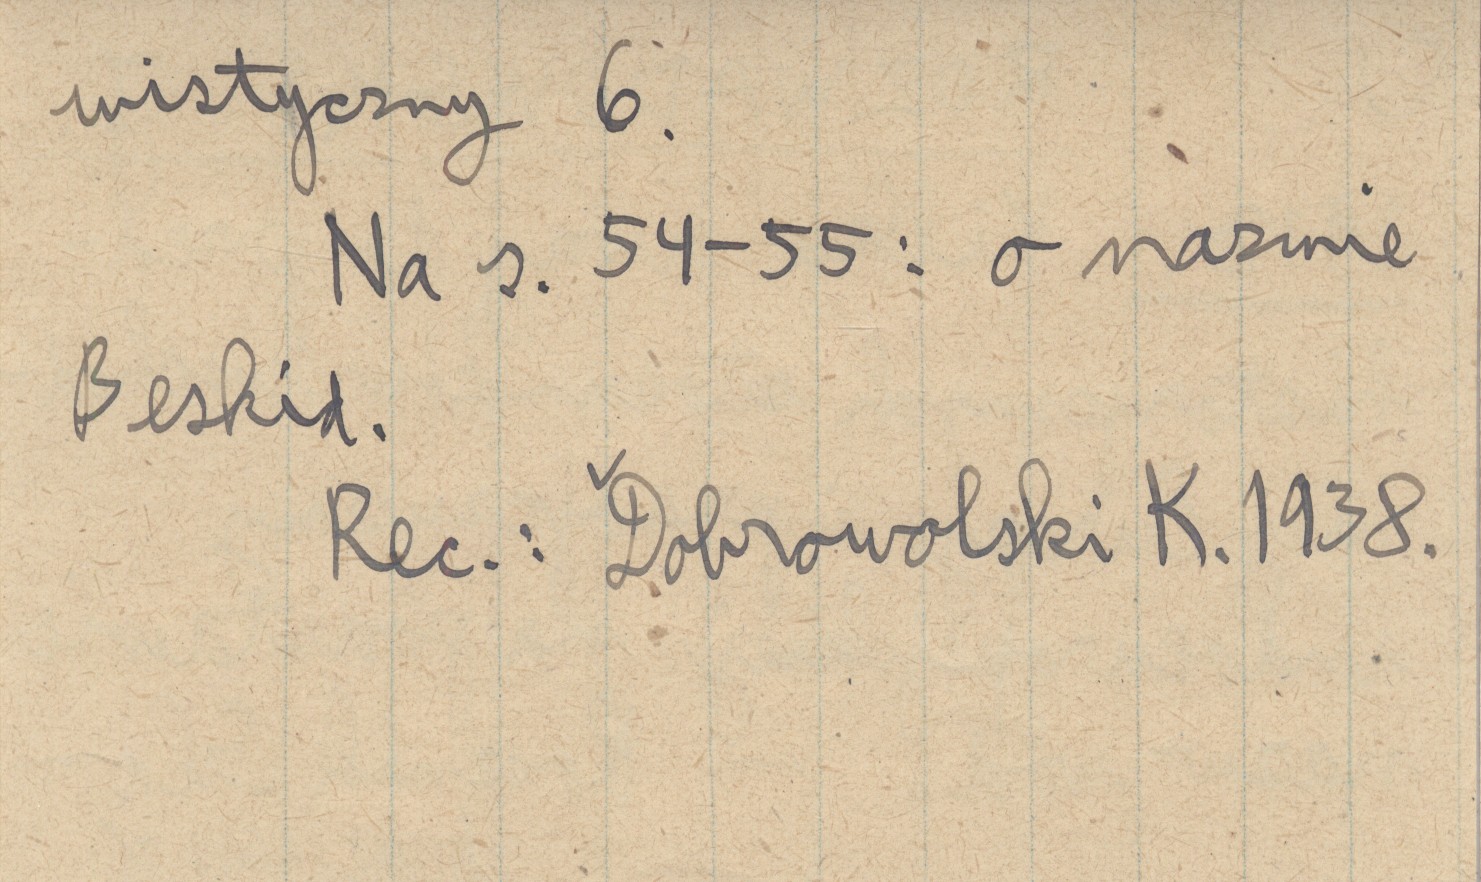 wistyczny 6.
Na s. 54-55: o nazwie
Beskid.
Rec.: ✓Dobrowolski K. 1938.